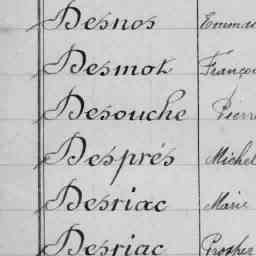 Desnos
Desmot Franço
Desouche Pierre
Després Michel
Desriac Marie
Desriac Prosper